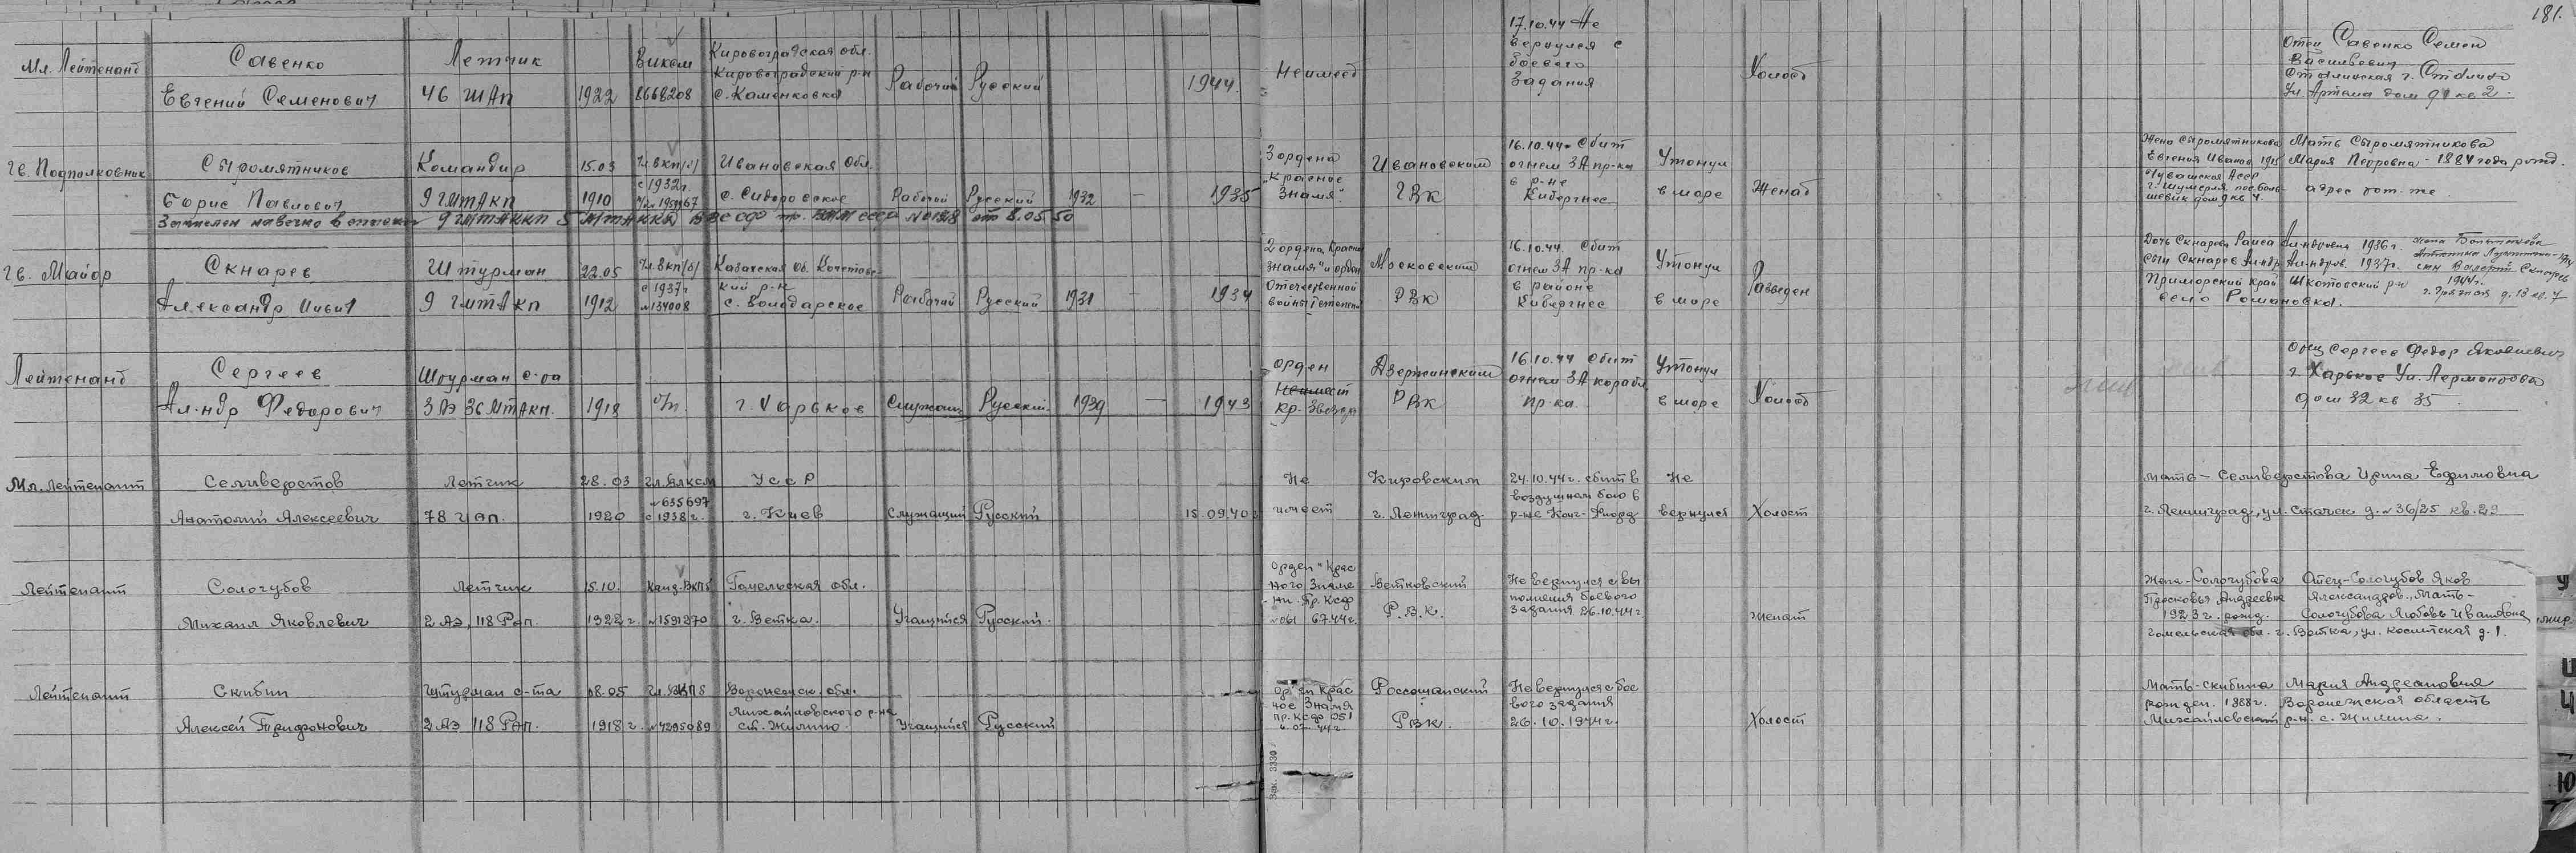 181.
Мл. Лейтенант
Савенко
Евгений Семенович
Летчик
46 ШАП
1922
8668208
Кировоградская обл.
Кировоградский р-н
с. Каменковка
Рабочий
Русский
1944.
Не имеет
17.10.44 Не
вернулся с
боевого
задания
Холост
Отец Савенко Семен
Васильевич
Сталинская г. Сталино
Ул. Артема дом 91 кв 2.
Гв. Подполковник
Сыромятников
Борис Павлович
Командир
9 ГМТАКП
15.03
1910
Чл. ВКП/б/
с 1932 г.
Ивановская Обл.
с. Сидоровское
Рабочий
Русский
1932
—
1935
Зачислен навечно в списки 9 ГМТАККП 5 МТАККД ВВС СФ пр. ВММ СССР от 8.05.50
3 ордена
"Красное
Знамя".
Ивановским
ГВК
16.10.44 Сбит
огнем ЗА пр-ка
в р-не
Кибергнес
Утонул
в море
Женат
Жена Сыромятникова
Евгения Иванов. 1915
Чувашская АССР
г. Шумерля пос. Боль-
шевик дом 9 кв 4.
Мать Сыромятникова
Мария Петровна - 1884 года рожд.
адрес тот-же.
Гв. Майор
Скнарев
Александр
Штурман
9 ГМТАКП
22.05
1912
Чл. ВКП/б/
с 1937 г
№134008
кий р-н
с. Володарское
Рабочий
Русский
1931
—
1934
2 ордена Красно
Знамя" и орден
Отечественной
войны I степени
Московским
РВК
16.10.44. Сбит
огнем ЗА пр-ка
в районе
Кибергнес
Утонул
в море
Разведен
Дочь Скнарева Раиса Ал-ндровна 1936 г.
Сын Скнарев Ал-ндр Ал-ндров. 1937 г.
Приморский Край Шкотовский р-н
село Романовка.
Лейтенант
Сергеев
Ал-ндр Федорович
Штурман с-та
3 АЭ 36 МТАКП.
1918
б/п.
г. Харьков
Служащ.
Русский
1939
—
1943
Орден
Не имеет
Кр. Звезда
Дзержинским
РВК
16.10.44 Сбит
огнем ЗА корабл.
пр-ка
Утонул
в море
Холост
Отец Сергеев Федор Яковлевич
г. Харьков Ул. Лермонтова
дом 32 кв 35
Мл. Лейтенант
Селиверстов
Анатолий Алексеевич
Летчик
78 ИАП.
28.03
1920
Чл. ВЛКСМ
№635697
с 1938 г.
УССР
г. Киев
Служащий
Русский
15.09.40
Не
имеет
Кировским
г. Ленинград
24.10.44 г. сбит в
воздушном бою в
р-не Конг-Фиорд
Не
вернулся
Холост
Мать - Селиверстова Ирина Ефимовна
г. Ленинград, ул. Стачек д. №36/25 кв. 29
Лейтенант
Сологубов
Михаил Яковлевич
Летчик
2 АЭ, 118 РАП.
15.10.
1922 г.
Канд. ВКПб
№1591270
Гомельская обл.
г. Ветка.
Учащийся
Русский.
Орден "Крас
ного Знаме
ни. Пр. КСФ
№061 6.7.44 г.
Ветковский
Р.В.К.
Не вернулся с вы
полнения боевого
задания 26.10.44 г
женат
Жена - Сологубова
Просковья Андреевна
1923 г. рожд.
Отец - Сологубов Яков
Александров., Мать -
Сологубова Любовь Ивановна,
Гомельская обл. г. Ветка, ул. д. 1.
Лейтенант
Скибин
Алексей Трифонович
Штурман с-та
2 АЭ 118 РАП.
08.05
1918 г.
Чл. ВКПб
№4295089
Воронежск. обл.
Михайловского р-на
Учащийся
Русский
Орден Крас
ное Знамя
пр. КСФ 051
Россошанский
РВК.
Не вернулся с бое
вого задания
26.10.1944 г.
Холост
Мать - Скибина Мария Андреановна
рожден. 1888 г. Воронежская область
Михайловский р-н. с. Жилина.
Зак. 3330